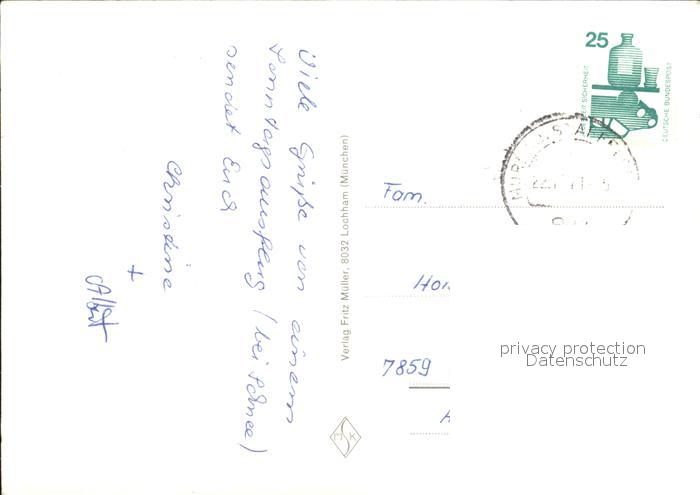 Viele Grüße von einem
Sonntagsausflug (bei Schnee)
sendet Euch
Christine
+
Albert
Verlag Fritz Müller, 8032 Lochham (München)
M S K
25
DEUTSCHE BUNDESPOST
SICHERHEIT
Fam.
7859
privacy protection
Datenschutz